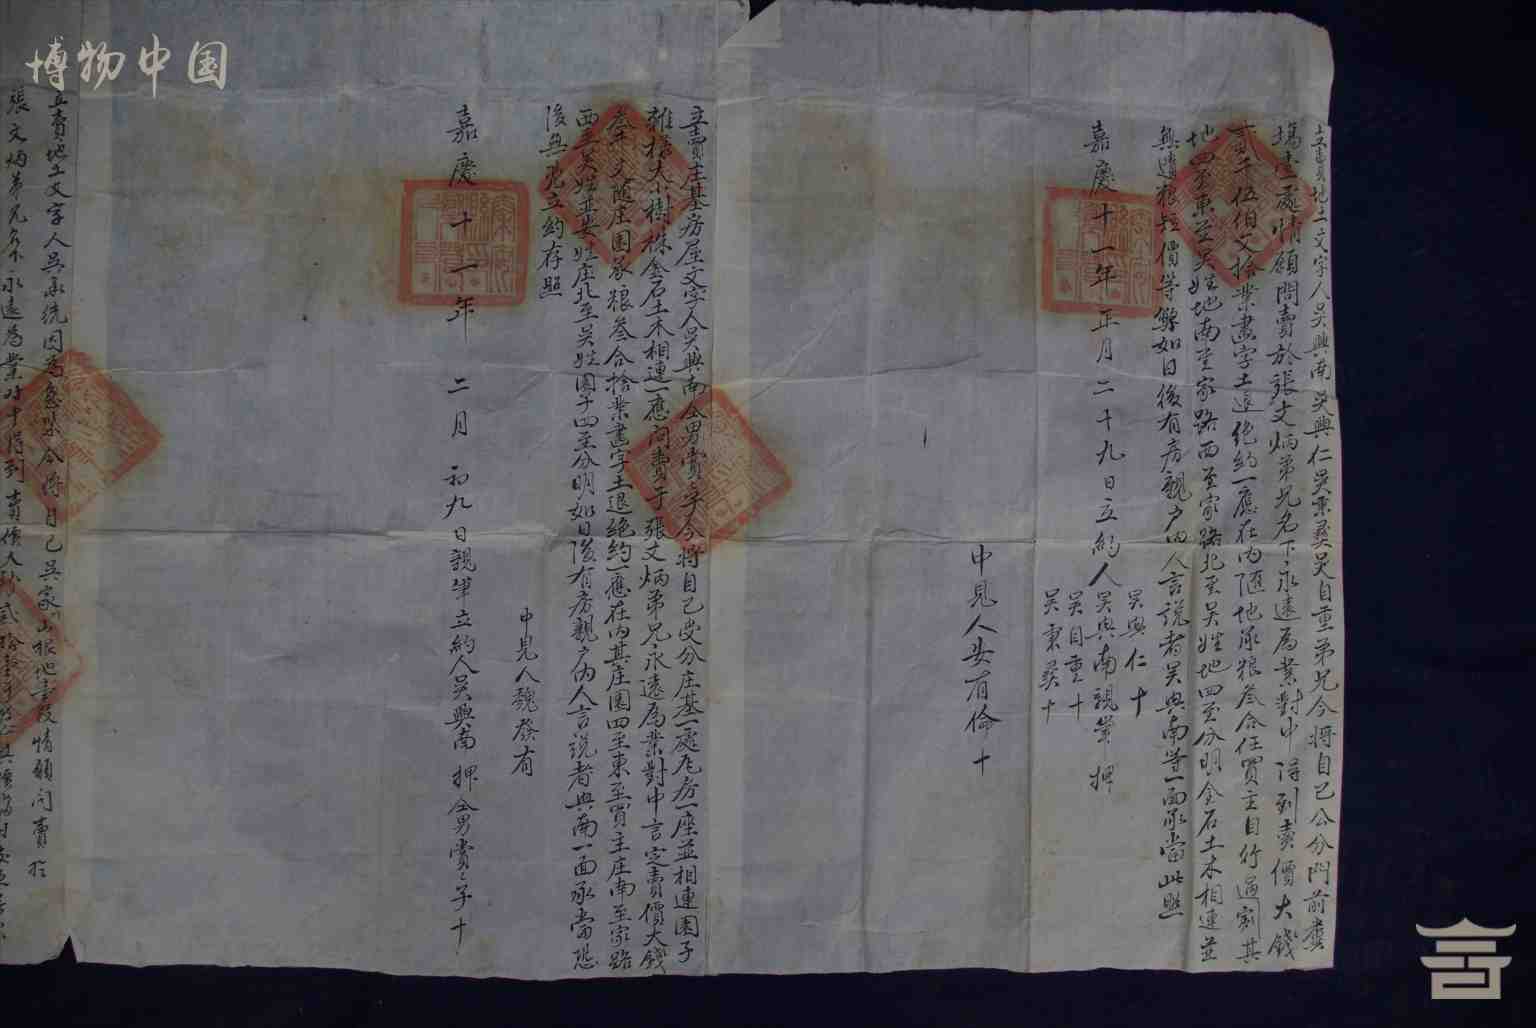 博物中国
立賣地土文字人吳興南吳興仁吳秉彝吳自重弟兄今將自己公分門前糞
塲壹處情願問賣於張文炳弟兄名下永遠為業對中得到賣價大錢
貳千伍伯文捨業畫字土退絶約一應在内隨地承粮叁合任買主自行過割其
地四至東至吳姓地南至家路西至家路北至吳姓地四至分明金石土木相連並
無遺粮短價等弊如日後有房親户内人言説者吳興南等一面承當此照
嘉慶十一年正月二十九日立約人吳興南親筆押
吳興仁十
吳自重十
吳秉彝十
中見人安有倫十
立賣庄基房屋文字人吳興南仝男賞字今將自己受分庄基一處瓦房一座並相連園子
雜樣大小樹株金石土木相連一應问賣于張文炳弟兄永遠為業對中言定賣價大錢
叁千文随庄園承粮叁合捨業畫字土退絶約一應在内其庄園四至東至買主庄南至家路
西至吳姓並安姓庄北至吳姓園子四至分明如日後有房親户内人言説者興南一面承當恐
後無凭立約存照
中見人魏發有
嘉慶十一年二月初九日親筆立約人吳興南押仝男賞字十
立賣地土文字人吳承统因為急緊今將自己吳家山根地壹段情願问賣於
張文炳弟兄名下永遠為業对中得到賣價大